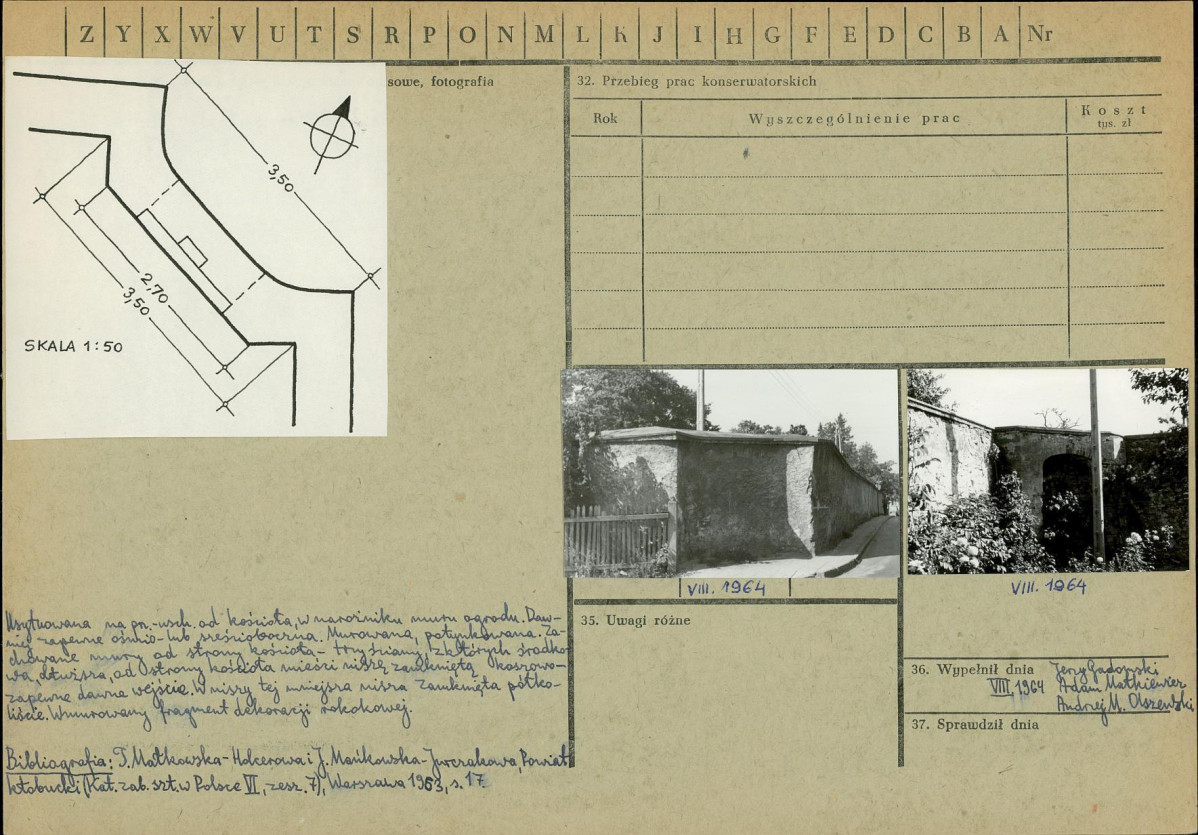 Z Y X W V U T S R P O N M L K J I H G F E D C B A Nr
sowe, fotografia
3,50
2,70
3,50
SKALA 1:50
32. Przebieg prac konserwatorskich
Rok Wyszczególnienie prac Koszt
tys. zł
VIII. 1964
VIII. 1964
Usytuowana na pn.-wsch. od kościoła, w narożniku muru ogrodu. Daw-
niej zapewne ośmio- lub sześcioboczna. Murowana, potynkowana. Za-
chowane mury od strony kościoła - trzy ściany, z których środko-
wa, dłuższa, od strony kościoła mieści niszę zamkniętą koszowo-
zapewne dawne wejście. W niszy tej mniejsza nisza zamknięta półko-
liście. Wmurowany fragment dekoracji rokokowej.
Bibliografia: T. Małkowska-Holcerowa i J. Mańkowska-Jurczakowa, Powiat
kłobucki (Kat. zab. szt. w Polsce VI, zesz. 7), Warszawa 1963, s. 17
35. Uwagi różne
36. Wypełnił dnia Jerzy Gadomski
VIII 1964 Adam Małkiewicz
Andrzej M. Olszewski
37. Sprawdził dnia